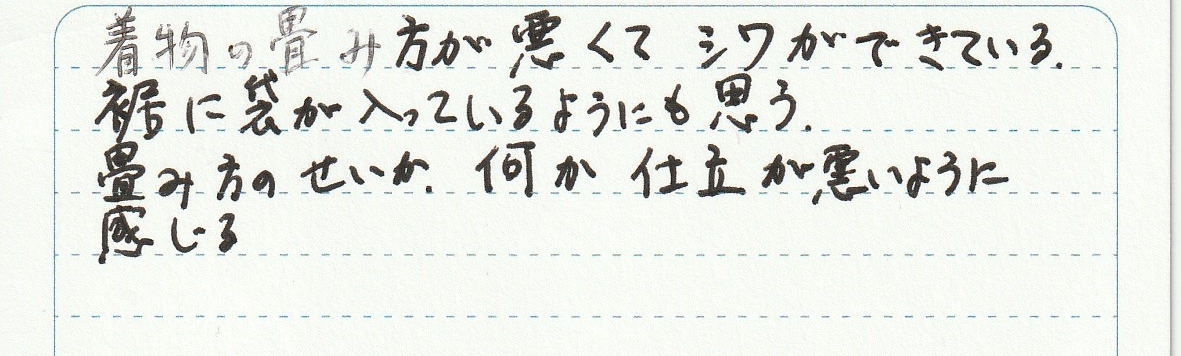 着物の畳み方が悪くて シワができている.
裾に袋が入っているようにも思う.
畳み方のせいか. 何か 仕立が悪いように
感じる